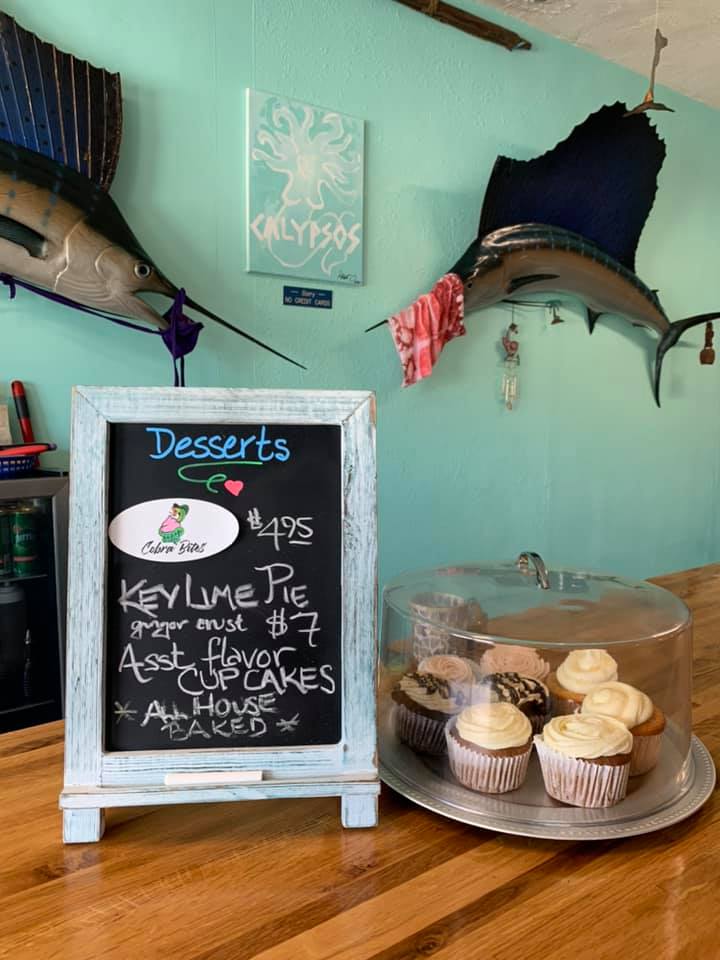 CALYPSOS
Sorry
NO CREDIT CARDS
Desserts
Cobra Bites
$4.95
KEY LIME PIE
ginger crust $7
Asst flavor
CUPCAKES
* ALL HOUSE
BAKED *